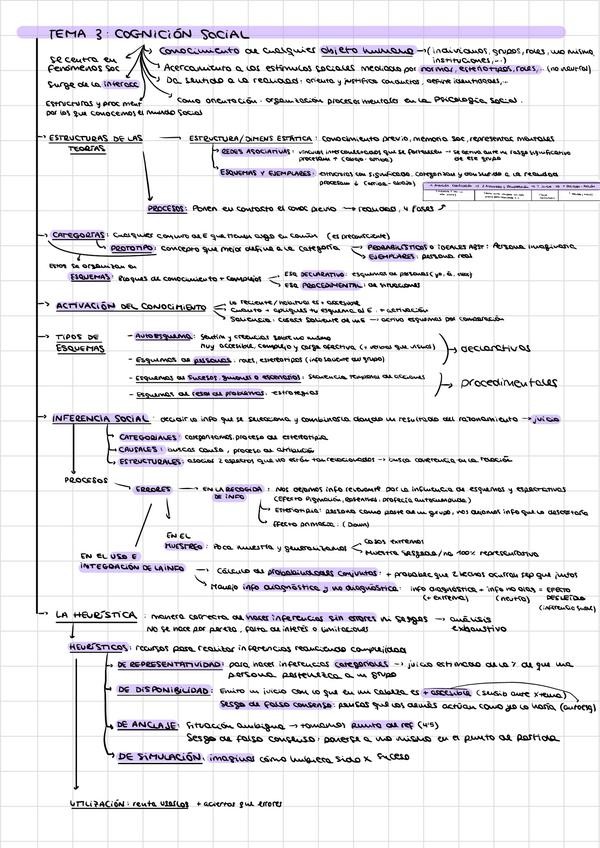 TEMA 3: COGNICIÓN SOCIAL
Se centra en fenómenos soc
Conocimiento de cualquier objeto humano → (individuos, grupos, roles, uno mismo, instituciones,...)
Surge de la interacc
Acercamiento a los estímulos sociales mediados por normas, estereotipos, roles,... (no neutral)
Da sentido a la realidad: orienta y justifica conductas, define identidades,...
Estructuras y proc ment por los que conocemos el mundo social
Como orientación: organización procesos mentales en la Psicología Social.
→ ESTRUCTURAS DE LAS TEORÍAS
→ ESTRUCTURA/DIMENS ESTÁTICA: conocimiento previo, memoria soc, represent mentales
REDES ASOCIATIVAS: vínculos interconectados que se fortalecen → se activa ante un rasgo significativo de ese grupo
procesam ↑ (abajo-arriba)
ESQUEMAS Y EJEMPLARES: estructuras con significado, categorizan y dan sentido a la realidad
procesam ↓ (arriba-abajo)
PROCESOS: Ponen en contacto el conoc previo → realidad, 4 fases
→ CATEGORÍAS: cualquier conjunto de E que tienen algo en común (es preexistente)
PROTOTIPO: concepto que mejor define a la categoría
PROBABILÍSTICOS o IDEALES ABST: Persona imaginaria
EJEMPLARES: persona real
Estos se organizan en
ESQUEMAS: Bloques de conocimiento + complejos
Esq DECLARATIVO: esquemas de personas (yo, él, rol)
Esq PROCEDIMENTAL: de situaciones
→ ACTIVACIÓN DEL CONOCIMIENTO
Lo reciente/habitual es + accesible
Cuanto + apliques tu esquema al E. + activación
Saliencia: rasgo saliente de un E → activo esquemas por comparación
→ TIPOS DE ESQUEMAS
- Autoesquema: sentim y creencias sobre uno mismo
muy accesible, complejo y carga afectiva (+ verbal que visual)
- Esquemas de personas, roles, estereotipos (info saliente del grupo)
→ declarativos
- Esquemas de sucesos, guiones o escenarios: secuencia temporal de acciones
- Esquemas de resol de problemas: estrategias
→ procedimentales
→ INFERENCIA SOCIAL: decidir la info que se selecciona y combinarla dando un resultado del razonamiento → juicio
CATEGORIALES: comportamos, proceso de estereotipia
CAUSALES: buscas causa, proceso de atribución
ESTRUCTURALES: asocias 2 aspectos que no están tan relacionados → busca coherencia en la relación
PROCESOS
ERRORES
→ EN LA RECOGIDA DE INFO
Nos dejamos info relevante por la influencia de esquemas y expectativas
(Efecto Pigmalión, Rosenthal, profecía autocumplida)
→ Estereotipia: persona como parte de un grupo, nos dejamos info que lo descartaría
Efecto primacía: (Down)
EN EL MUESTREO: Poca muestra y generalizamos
Casos extremos
Muestra sesgada/no 100% representativo
EN EL USO E INTEGRACIÓN DE LA INFO
→ Cálculo de probabilidades conjuntas: + probable que 2 hechos ocurran sep que juntos
Manejo info diagnóstica y no diagnóstica: info diagnóstica + info no diag = EFECTO DESLEÍDO
(+ extrema) (neutra) (inferencia sutil)
→ LA HEURÍSTICA: manera correcta de hacer inferencias sin errores ni sesgos → análisis exhaustivo
No se hace por pereza, falta de interés o limitaciones
HEURÍSTICOS: recursos para realizar inferencias reduciendo complejidad
DE REPRESENTATIVIDAD: para hacer inferencias categoriales → juicio estimado de la % de que una persona pertenezca a un grupo
DE DISPONIBILIDAD: Emito un juicio con lo que en mi cabeza es + accesible (sesgo ante x tema)
Sesgo de falso consenso: piensas que los demás actúan como yo lo haría
DE ANCLAJE: Situación ambigua → tomamos punto de ref (4'5)
Sesgo de falso consenso: ponerse a uno mismo en el punto de partida
DE SIMULACIÓN: imaginas cómo hubiera sido x suceso
UTILIZACIÓN: renta usarlos + aciertos que errores